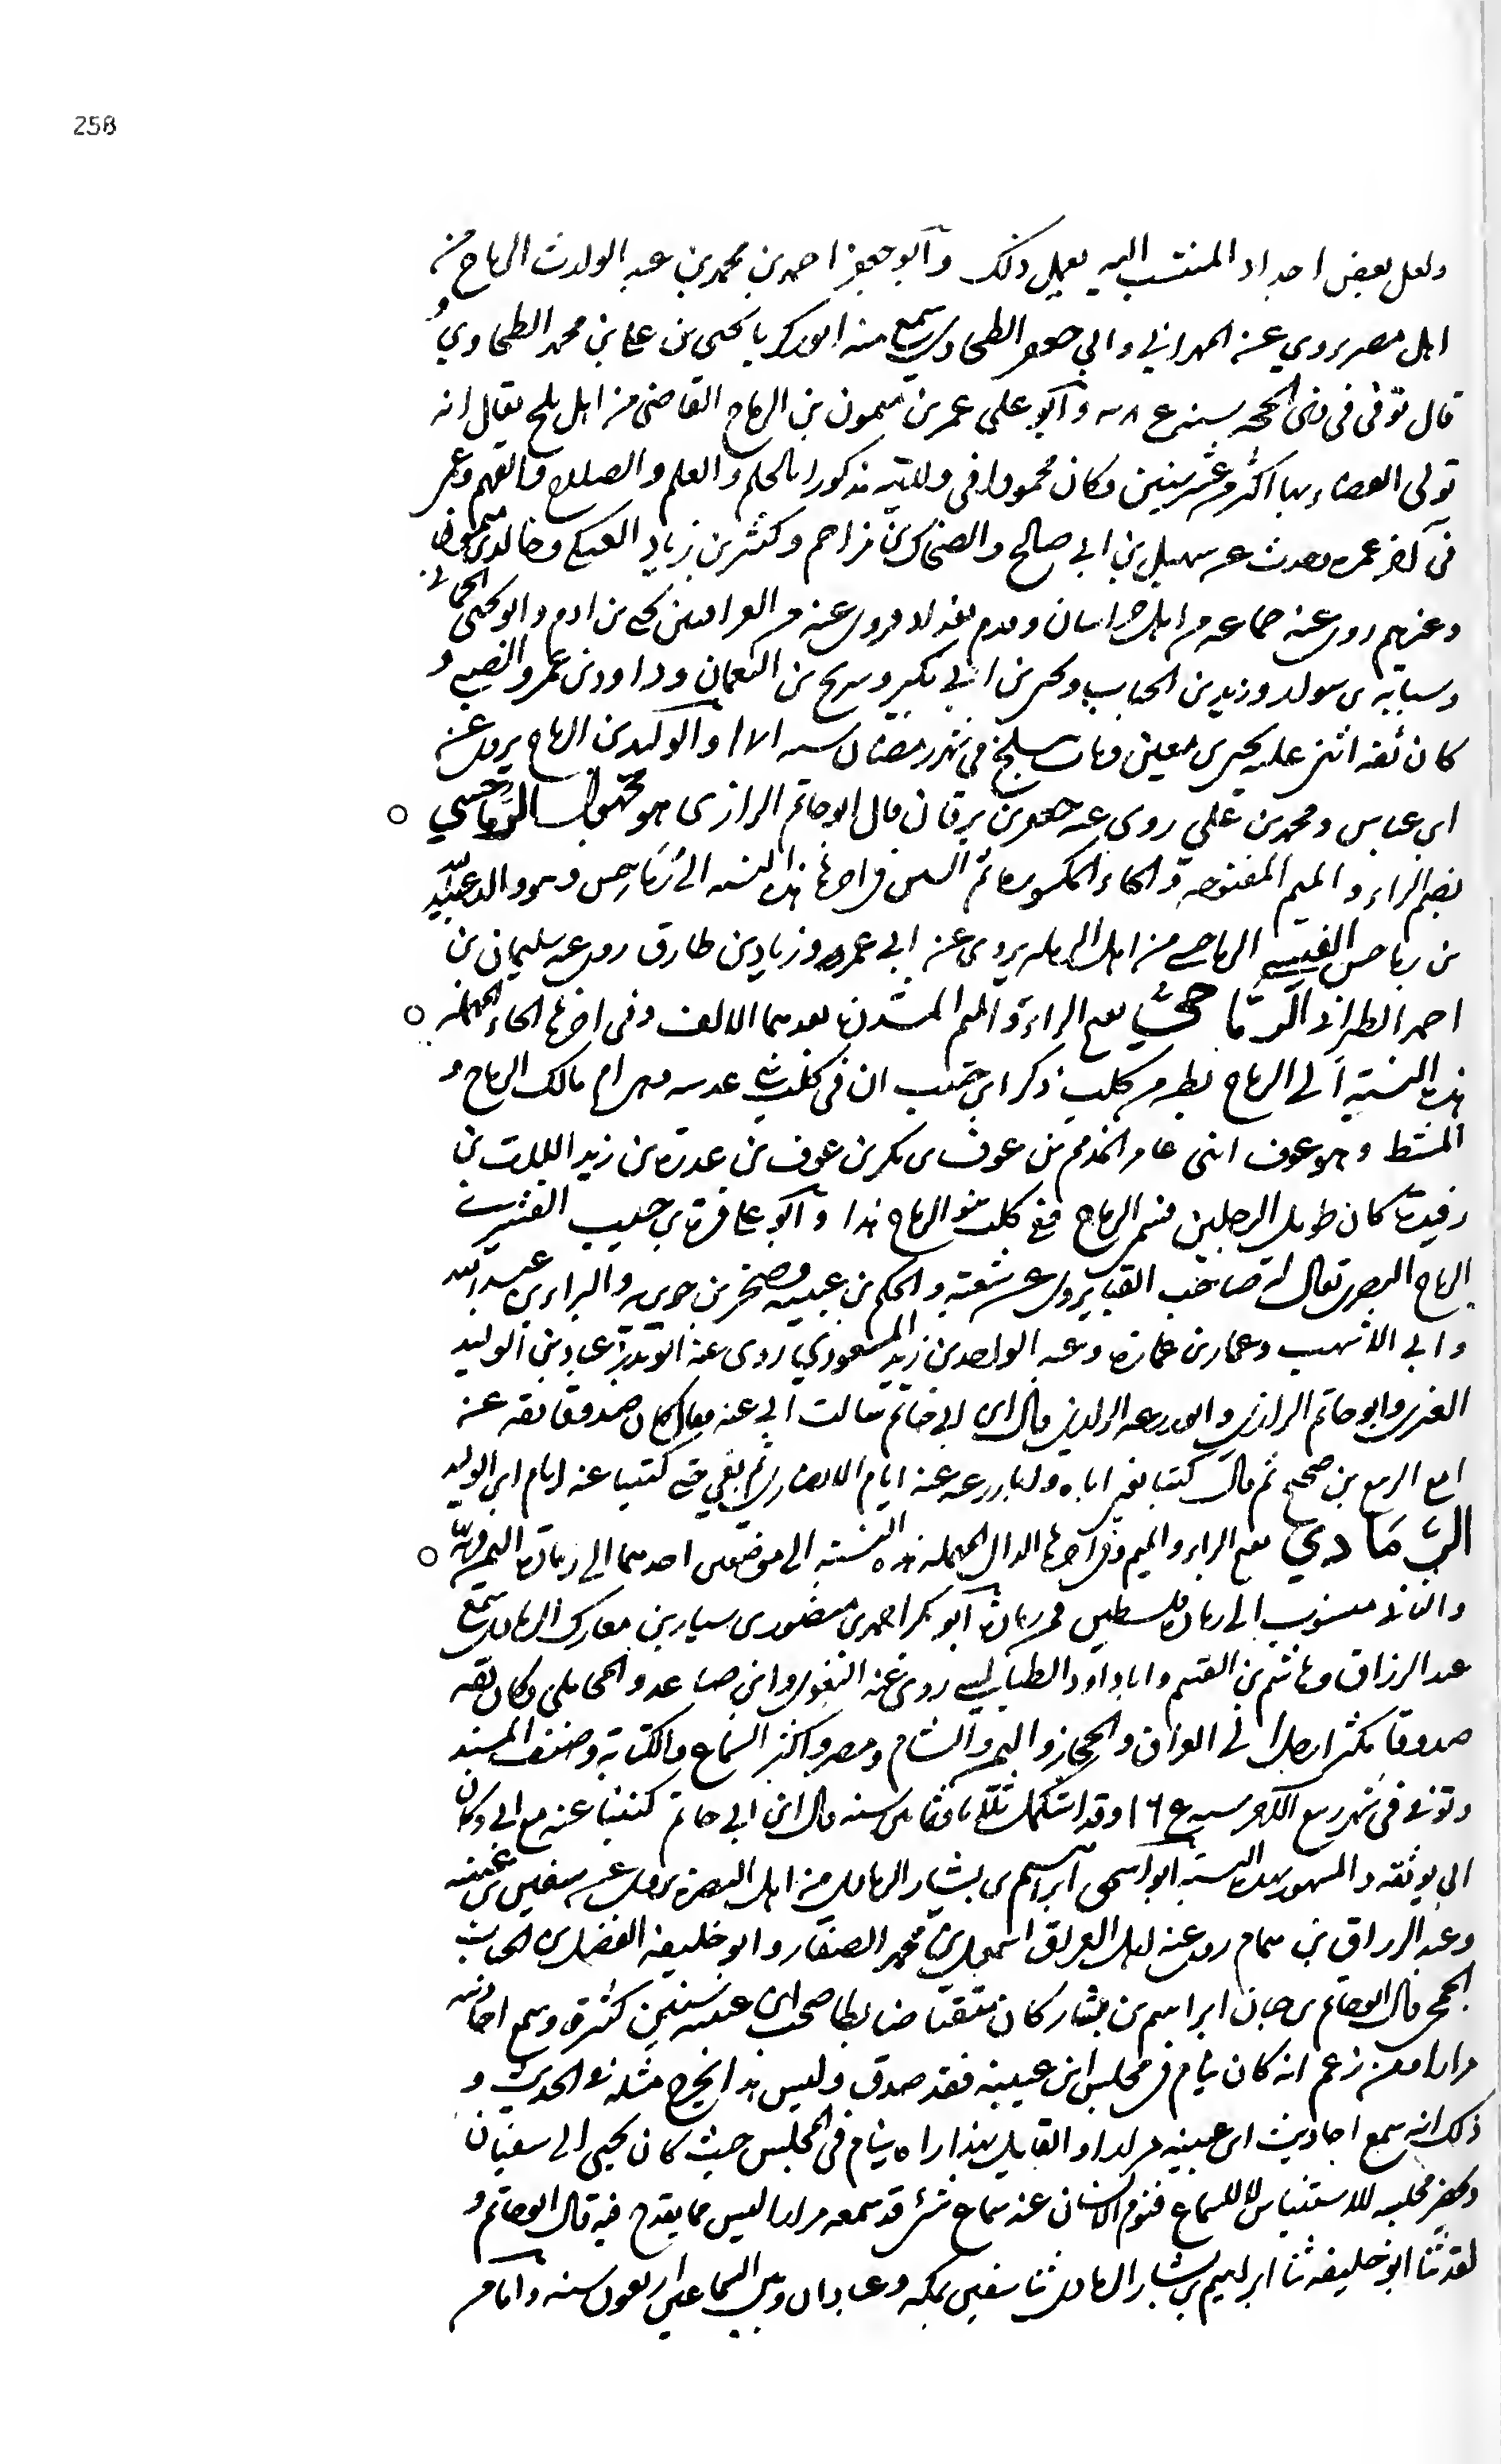 258
ولعل بعض اجداد المنتسب اليه يعمل ذلك وابو جعفر احمد بن محمد بن عبد الوارث الرماح من
اهل مصر يروي عن المهراني وابي جعفر الطحاوي سمع منه ابو زكريا يحيى بن علي بن محمد الطحاوي و
قال توفي في ذي الحجة سنة وابو علي عمر بن ميمون بن الرماح القاضي من اهل بلخ يقال انه
تولى القضاء بها اكثر من عشرين سنين وكان محمودا في ولايته مذكورا بالحلم والعلم والصلاح والفهم وعمي
في آخر عمره وحدث عن سهيل بن ابي صالح والضحاك بن مزاحم وكثير بن زياد العتكي وخالد بن ميمون
وغيرهم روى عنه جماعة من اهل خراسان وقدم بغداد فروى عنه من العراقيين يحيى بن ادم وابو يحيى الحماني
وشبابه بن سوار وزيد بن الحباب ويحيى بن ابي بكير وسريج بن النعمان وداود بن عمرو الضبي و
كان ثقه اثنى عليه يحيى بن معين ومات ببلخ في شهر رمضان سنه ١٧١ والوليد بن الرماح يروي عن
ابن عباس ومحمد بن علي روى عنه جعفر بن برقان قال ابو حاتم الرازي هو مجهول الرماحسي ○
بضم الراء والميم المفتوحه والحاء المكسوره ثم السين في اخرها هذه النسبه الى رماحس وهو والد عبيد الله
بن رماحس القيسي الرماحسي من اهل الرمله يروي عن ابي عمرو زياد بن طارق روى عنه سليمان بن
احمد الطبراني الرَّمَّاحيّ بفتح الراء والميم المشددة بعدهما الالف وفي اخرها الحاء المهملة ○
هذه النسبة الى الرماح بطن من كلب ذكر ابن حبيب ان في كلب بني عدسه وهم ام مالك الرماح و
المشط وهو عوف ابني عامر المذمم بن عوف بن بكر بن عوف بن عذرة بن زيد اللات بن
رفيدة كان طويل الرجلين فسمي الرماح ففي كلب بنو الرماح هذا وابو علي قرة بن حبيب القشيري
الرماح البصري يقال له صاحب القنا يروي عن شعبة والحكم بن عطيه وصخر بن جويريه والبراء بن عبد الله
وابي الاشهب وعمار بن عمارة وعبد الواحد بن زيد المسعودي روى عنه ابو بدر عباد بن الوليد
الغبري وابو حاتم الرازي وابو زرعه الرازي قال ابن ابي حاتم سالت ابي عنه فقال كان صدوقا ثقه عنه
الربيع بن صبيح ثم قال كتبنا ايام الانصاري ثم بقي حتى كتبنا عنه ايام ابي الوليد
الرَّمَادي بفتح الراء والميم وفي اخرها الدال المهملة هذه النسبة الى موضعين احدهما الى رمادة اليمن قرية ○
والثاني منسوب الى رمادة فلسطين فمن رمادة ابو بكر احمد بن منصور بن سيار بن معارك الرمادي سمع
عبد الرزاق وهاشم بن القسم وابا داود الطيالسي روى عنه البغوي وابن صاعد والمحاملي وكان ثقه
صدوقا مكثرا رحل الى العراق والحجاز واليمن والشام ومصر واكثر السماع والكتابة وصنف المسند
وتوفي في شهر ربيع الآخر سنه وقد استكمل ثلثا وثمانين سنه قال ابن ابي حاتم كتبنا عنه مع ابي وكان
ابي يوثقه والمشهور بهذه النسبة ابو اسحق ابراهيم بن بشار الرمادي من اهل البصرة يروي عن سفين بن عيينه
وعبد الرزاق بن همام روى عنه اهل العراق اسمعيل بن محمد الصفار وابو خليفه الفضل بن الحباب
الجمحي قال ابو حاتم بن حبان ابراهيم بن بشار كان متقنا ضابطا صحب ابن عيينه سنين كثيرة وسمع احاديثه
مرارا ومن زعم انه كان ينام في مجلس ابن عيينه فقد صدق وليس هذا بجرح مثله في الحديث و
ذلك انه سمع احاديث ابن عيينه مرارا والقايل بهذا راه ينام في المجلس حيث كان يجيى الى سفيان
ويحضر مجلسه للاستيناس لا للسماع فنوم الانسان عند سماع شيء قد سمعه مرارا ليس مما يقدح فيه قال ابو حاتم و
لقد ثنا ابو خليفه ثنا ابراهيم بن بشار الرمادي ثنا سفين بمكه وعبادان وبين السماعين اربعون سنه واما من